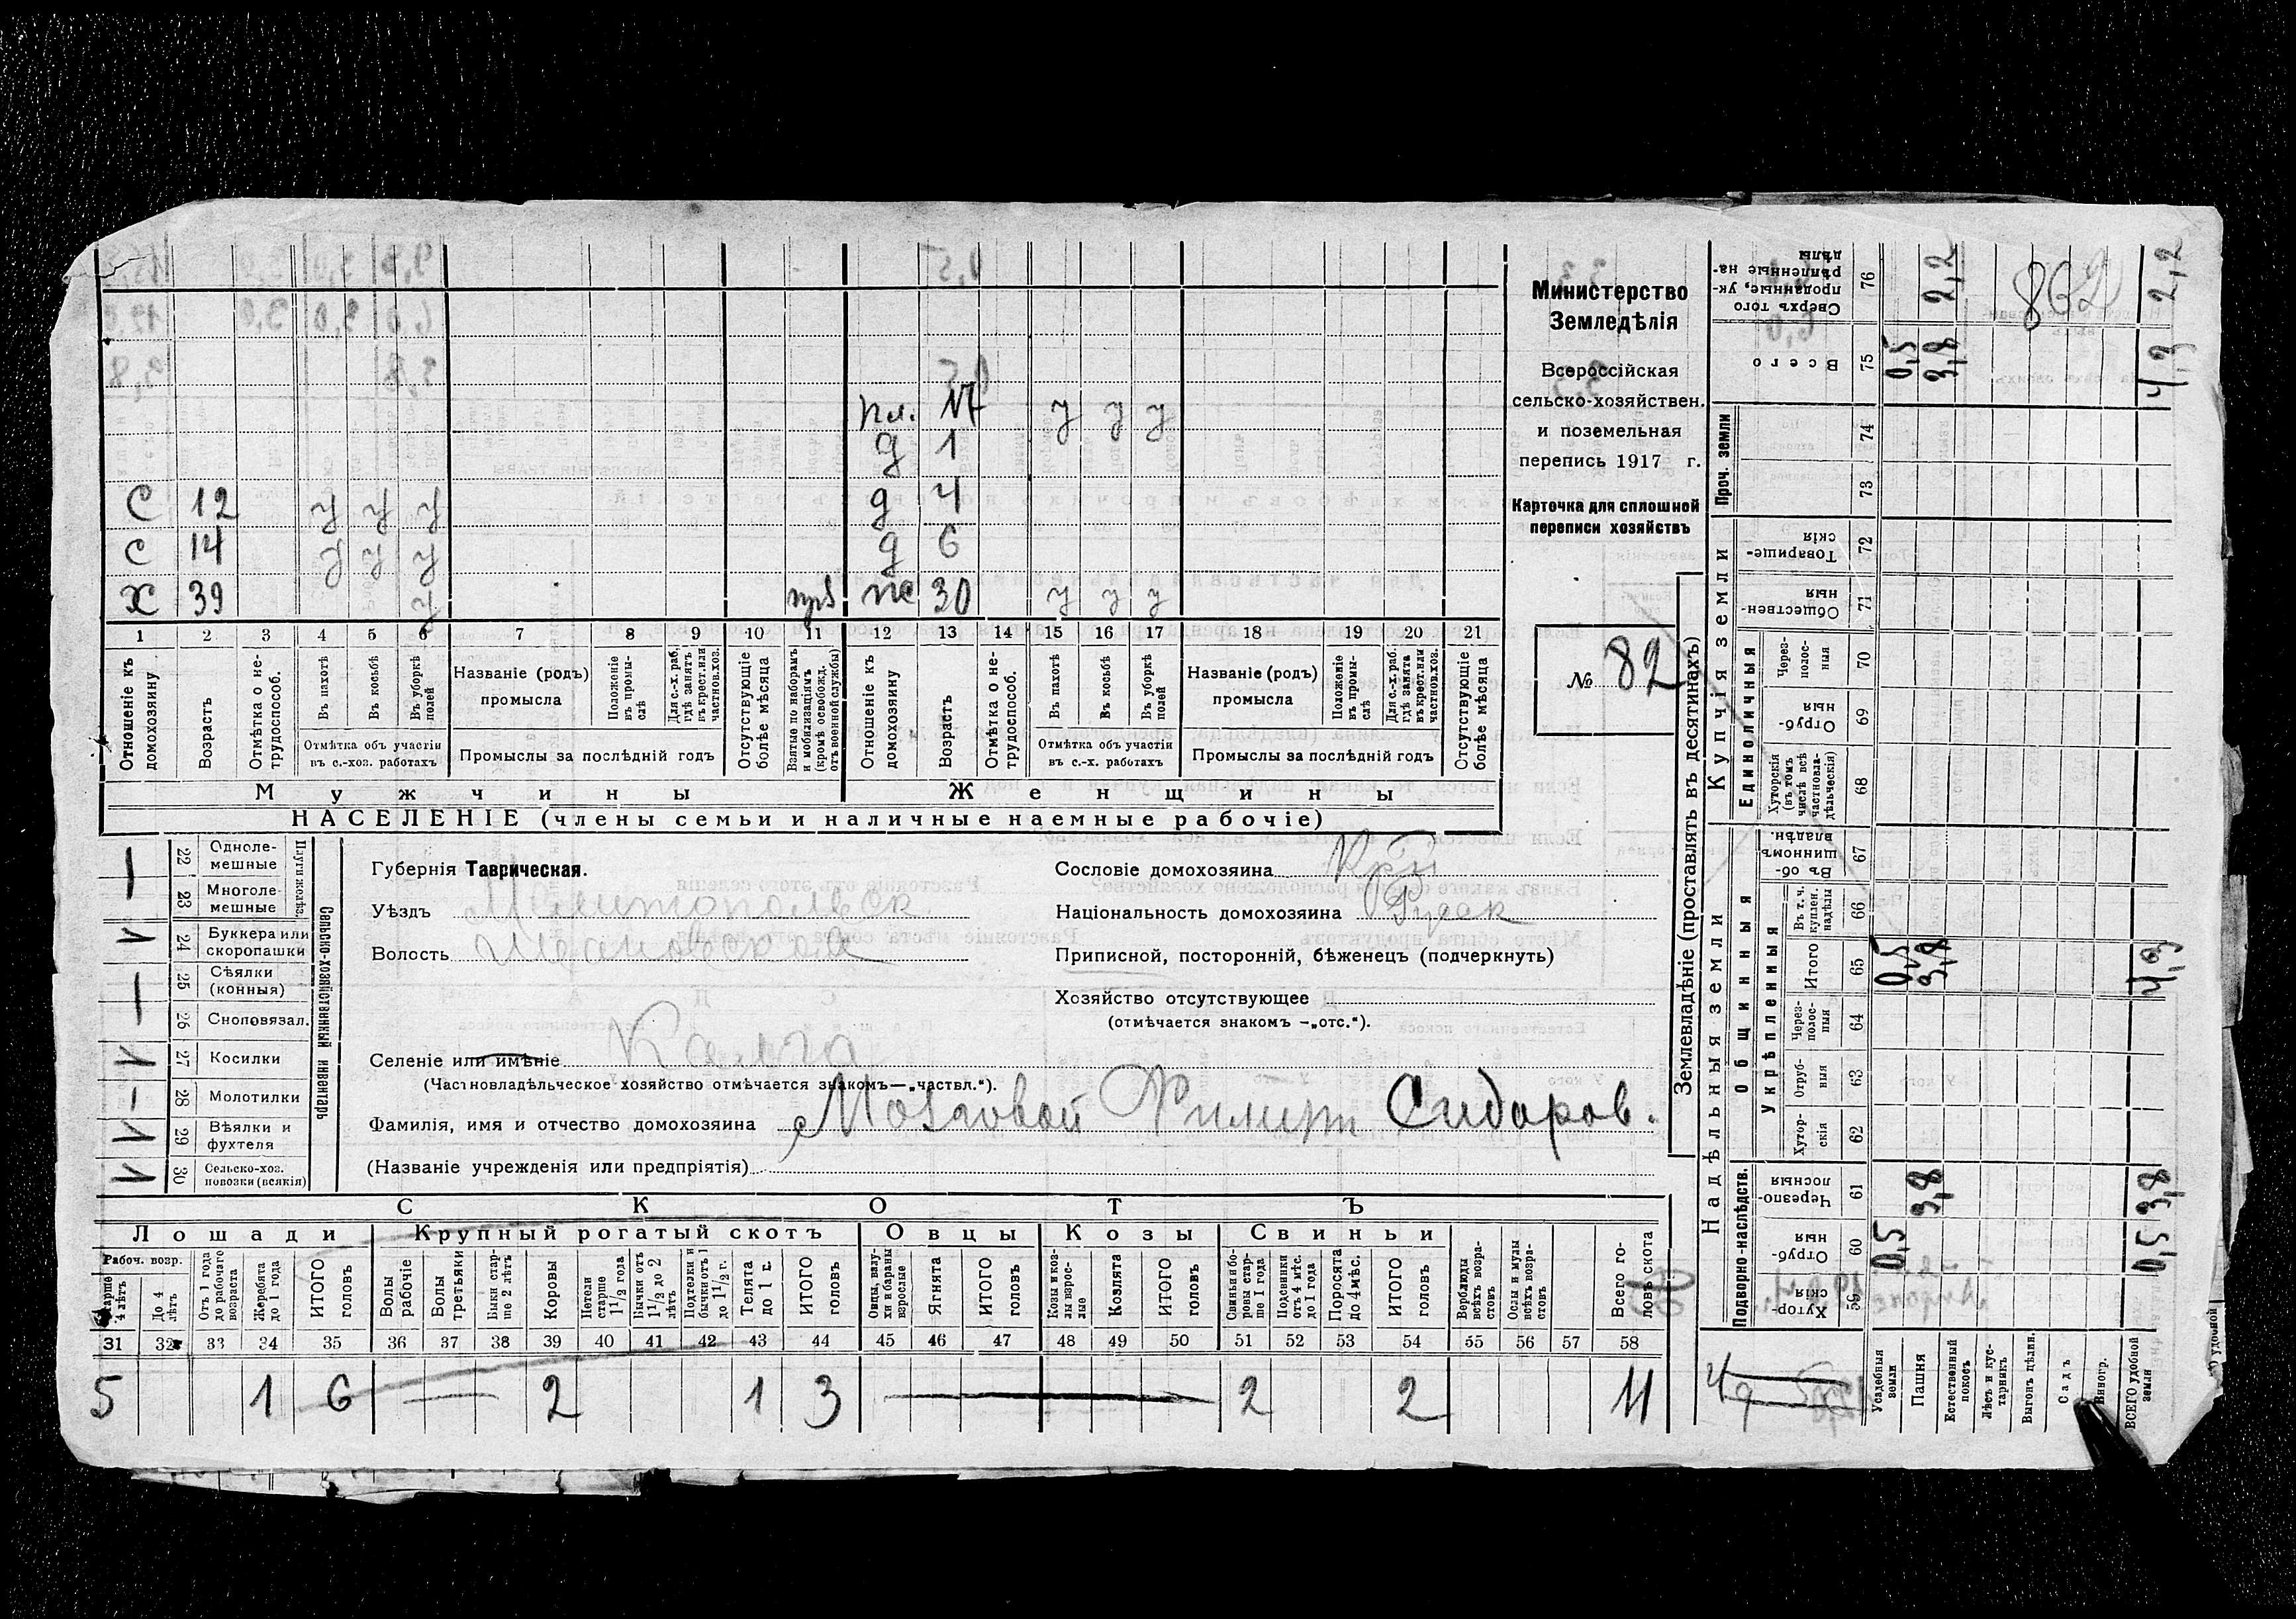 Министерство
Земледѣлія
Всероссійская
сельско-хозяйствен.
и поземельная
перепись 1917 г.
Карточка для сплошной
переписи хозяйствъ
№ 82
пл. 17 у у у
д 1
С 12 у у у д 4
С 14 у у у д 6
Х 39 у 30 у у у
1 2 3 4 5 6 7 8 9 10 11 12 13 14 15 16 17 18 19 20 21
Отношеніе къ домохозяину
Возрастъ
Отмѣтка о не-трудоспособ.
Въ пахотѣ
Въ косьбѣ
Въ уборкѣ полей
Отмѣтка объ участіи въ с.-хоз. работахъ
Названіе (родъ) промысла
Положеніе въ промы-слѣ
Для с.-х. раб., гдѣ занятъ въ крест. или частнов. хоз.
Промыслы за послѣдній годъ
Отсутствующіе болѣе мѣсяца
Взятые по наборамъ и мобилизаціямъ (кромѣ освобожд. отъ военной службы)
Отношеніе къ домохозяину
Возрастъ
Отмѣтка о не-трудоспособ.
Въ пахотѣ
Въ косьбѣ
Въ уборкѣ полей
Отмѣтка объ участіи въ с.-х. работахъ
Названіе (родъ) промысла
Положеніе въ промы-слѣ
Для с.-х. раб., гдѣ занята въ крест. или частнов. хоз.
Промыслы за послѣдній годъ
Отсутствующіе болѣе мѣсяца
Мужчины Женщины
НАСЕЛЕНІЕ (члены семьи и наличные наемные рабочіе)
Сельско-хозяйственный инвентарь
Плуги желѣз.
22 Одноле-мешные
23 Многоле-мешные
24 Буккера или скоропашки
25 Сѣялки (конныя)
26 Сноповязал.
27 Косилки
28 Молотилки
29 Вѣялки и фухтеля
30 Сельско-хоз. повозки (всякія)
Губернія Таврическая.
Уѣздъ Мелитопольск
Волость
Селеніе или имѣніе
(Частновладѣльческое хозяйство отмѣчается знакомъ—„частвл.“).
Фамилія, имя и отчество домохозяина Мозговой Филипп Сидоров.
(Названіе учрежденія или предпріятія)
Сословіе домохозяина
Національность домохозяина
Приписной, посторонній, бѣженецъ (подчеркнуть)
Хозяйство отсутствующее
(отмѣчается знакомъ —„отс.“).
СКОТЪ
Лошади Крупный рогатый скотъ Овцы Козы Свиньи
Рабоч. возр.
Старше 4 лѣтъ
До 4 лѣтъ
Отъ 1 года до рабочаго возраста
Жеребята до 1 года
ИТОГО головъ
Волы рабочіе
Волы третьяки
Быки стар-ше 2 лѣтъ
Коровы
Нетели старше 1 1/2 года
Бычки отъ 1 1/2 до 2 лѣтъ
Подтелки и бычки отъ 1 до 1 1/2 г.
Телята до 1 г.
ИТОГО головъ
Овцы, валу-хи и бараны взрослые
Ягнята
ИТОГО головъ
Козы и коз-лы взрос-лые
Козлята
ИТОГО головъ
Свиньи и бо-ровы стар-ше 1 года
Подсвинки отъ 4 мѣс. до 1 года
Поросята до 4 мѣс.
ИТОГО головъ
Верблюды всѣхъ возра-стовъ
Ослы и мулы всѣхъ возра-стовъ
Всего го-ловъ скота
31 32 33 34 35 36 37 38 39 40 41 42 43 44 45 46 47 48 49 50 51 52 53 54 55 56 57 58
5 1 6 2 1 3 2 2 11
Землевладѣніе (проставлять въ десятинахъ)
Надѣльныя земли Купчія земли Проч. земли
Общинныя Единоличныя
Подворно-наслѣдств. Укрѣпленныя
59 Хутор-скія
60 Отруб-ныя 0,5 0,5
61 Черезпо-лосныя 3,8 3,8
62 Хутор-скія
63 Отруб-ныя
64 Через-полос-ныя
65 Итого 0,5 3,8 4,3
66 Въ т. ч. куплен. надѣлы
67 Въ об-щинномъ владѣн.
68 Хуторскія (въ томъ числѣ всѣ частновла-дѣльческія)
69 Отруб-ныя
70 Через-полос-ныя
71 Обществен-ныя
72 Товарище-скія
73
74
75 Всего 0,5 3,8 4,3
76 Сверхъ того проданные, ук-рѣпленные на-дѣлы 2,2 862 2,2
Усадебныя земли
Пашня
Естественный покосъ
Лѣсъ и кус-тарникъ
Выгонъ цѣлин.
Садъ
Виногр.
ВСЕГО удобной земли